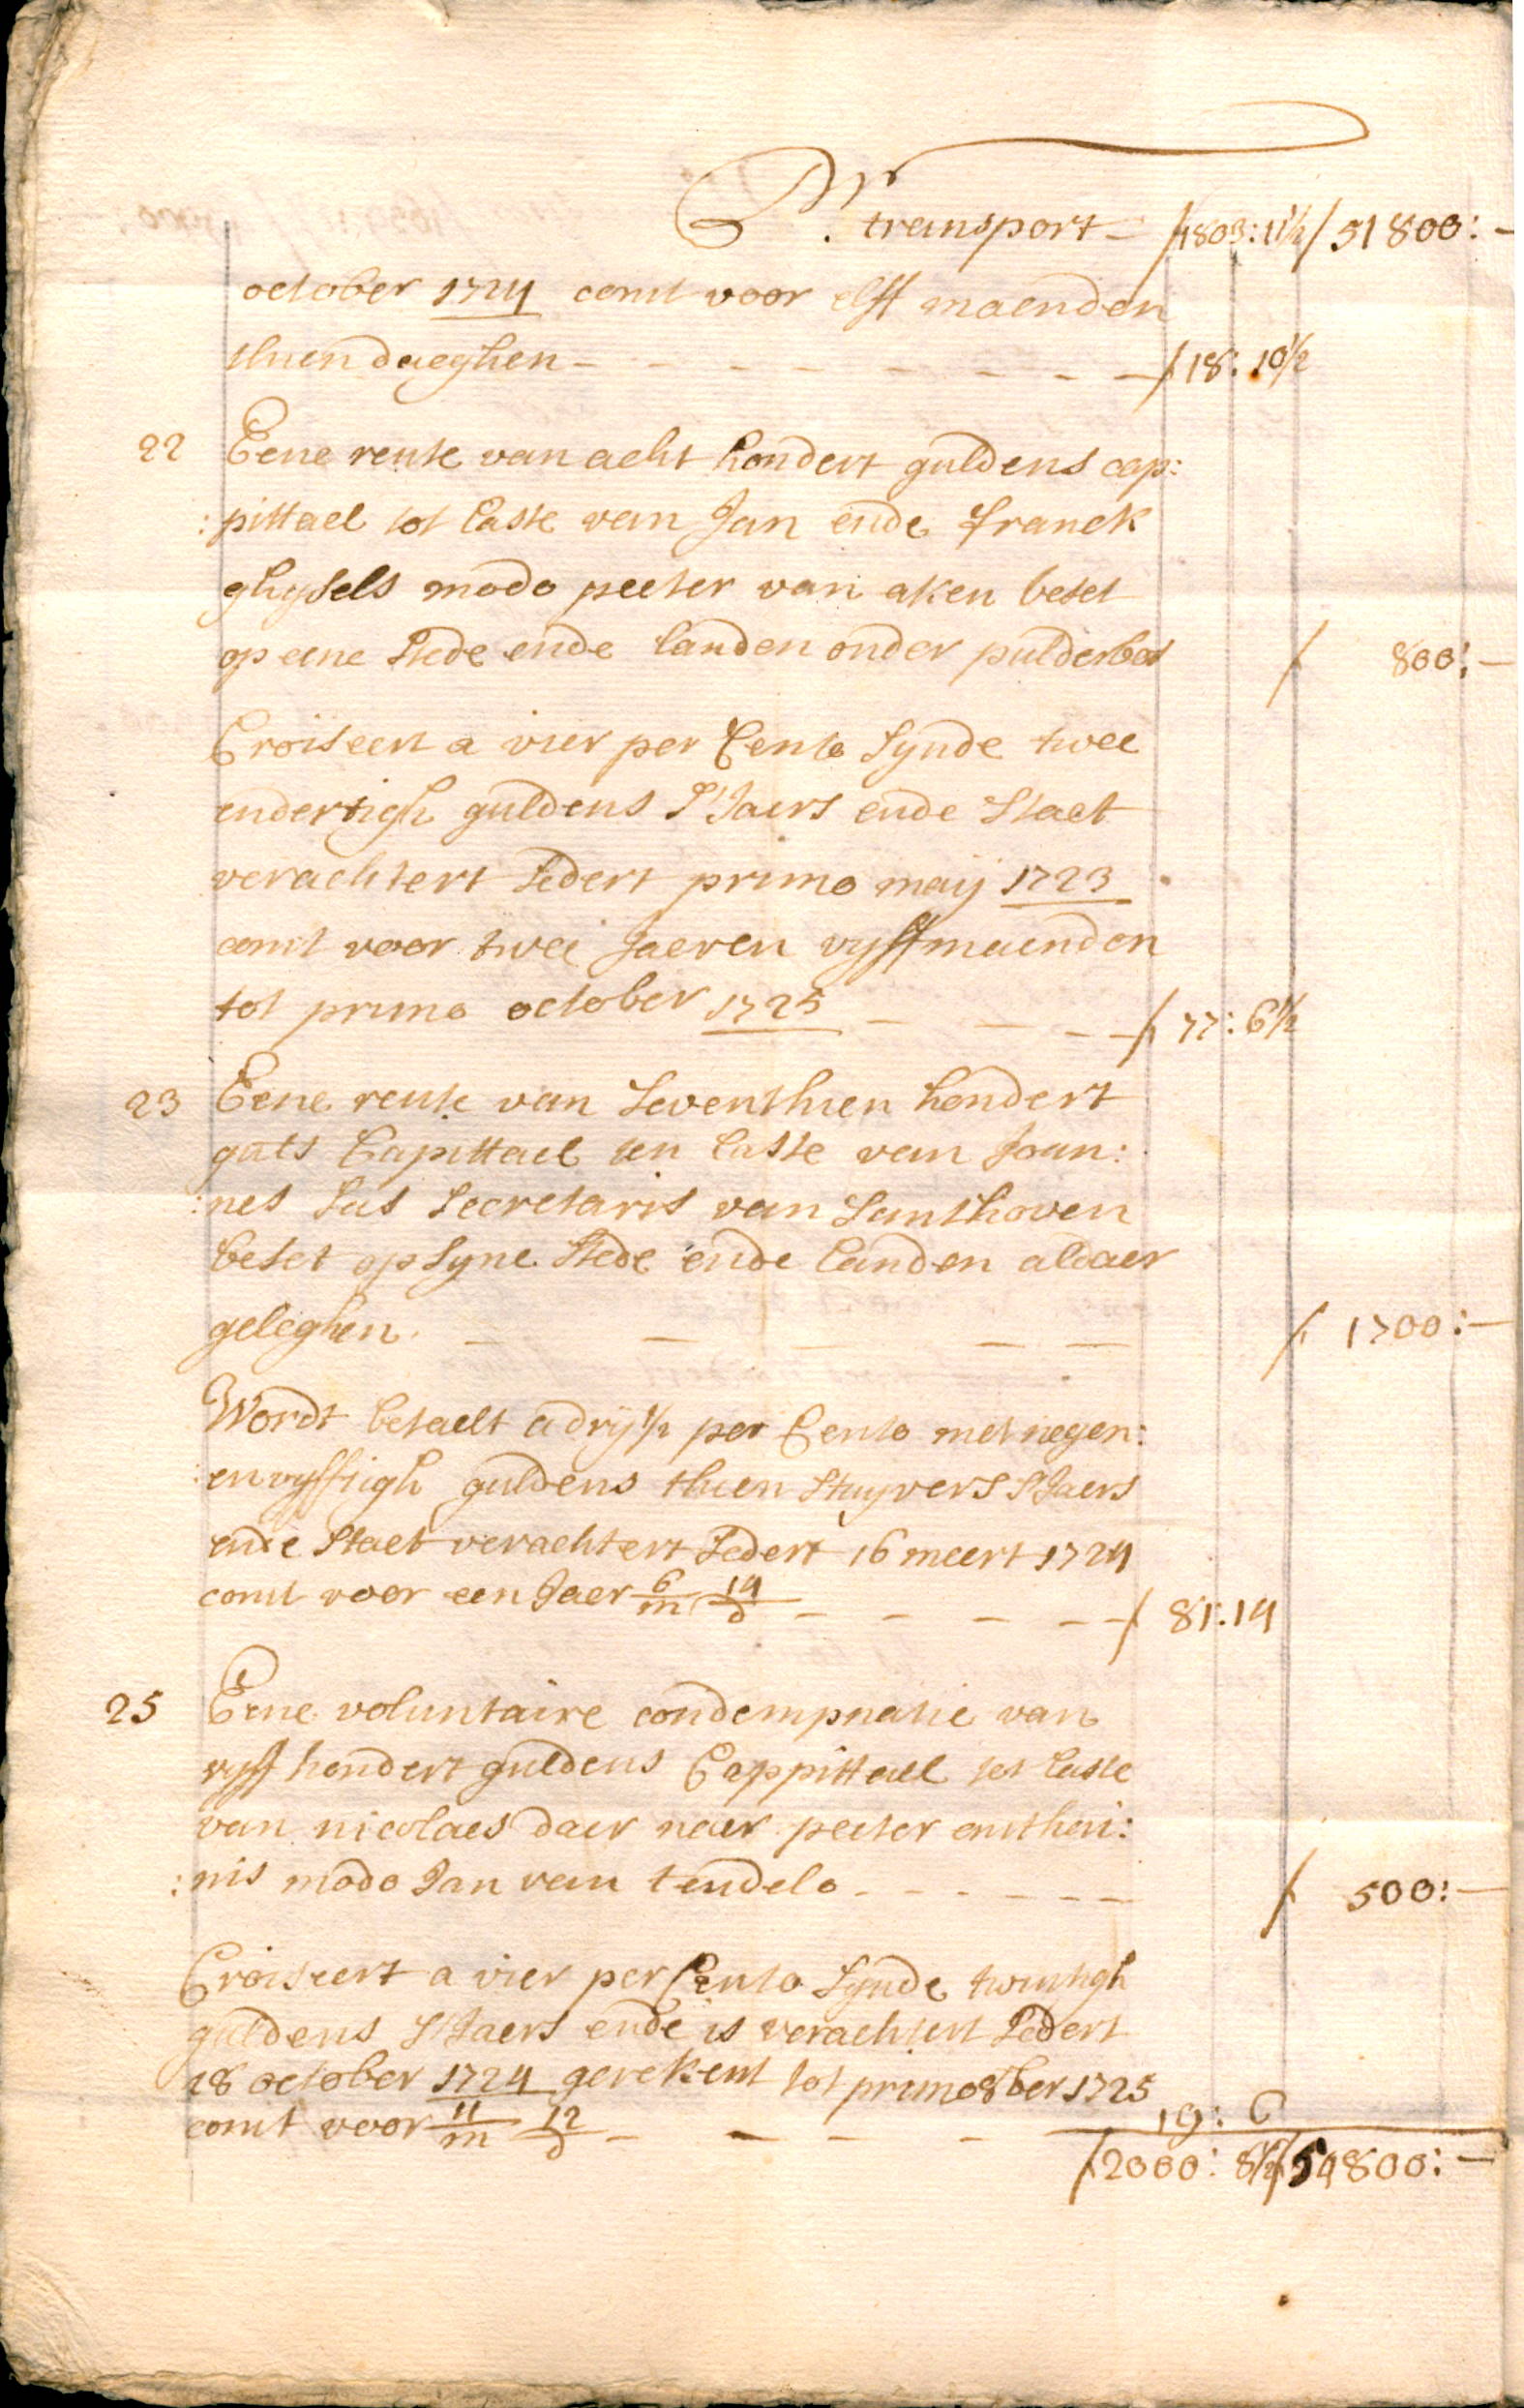 Pr. transport – f 1803: 11½ f 51800: –
october 1724 comt voor elff maenden
thien daeghen – – – – – – – – f 18: 10½
22 Eene rente van acht hondert guldens cap:
:pittael tot laste van Jan ende franck
ghysels modo peeter van aken beset
op eene stede ende landen onder pulderbos f 800: –
Croiseert a vier per Cento synde twee
endertigh guldens S'Jaers ende staet
verachtert sedert primo maij 1723
comt voor twee Jaeren vyff maenden
tot primo october 1725 – – – – f 77: 6½
23 Eene rente van seventhien hondert
guls Capittael ten laste van Joan:
:nes sas secretaris van santhoven
beset op syne stede ende landen aldaer
geleghen. – – – – – f 1700: –
Wordt betaelt a drij ½ per Cento met negen:
:en vyfftigh guldens thien stuyvers S'Jaers
ende staet verachtert sedert 16 meert 1724
comt voor een Jaer 6/m 14/d – – – – f 81: 14
25 Eene voluntaire condempnatie van
vyff hondert guldens Cappittael tot laste
van nicolaes daer naer peeter antheu:
:nis modo Jan van tendelo – – – – – – f 500: –
Croiseert a vier per Cento synde twintigh
guldens S'Jaers ende is verachtert sedert
18 october 1724 gerekent tot primo 8ber 1725
comt voor 11/m 12/d – – – – 19: 6
f 2000: 8½ f 54800: –